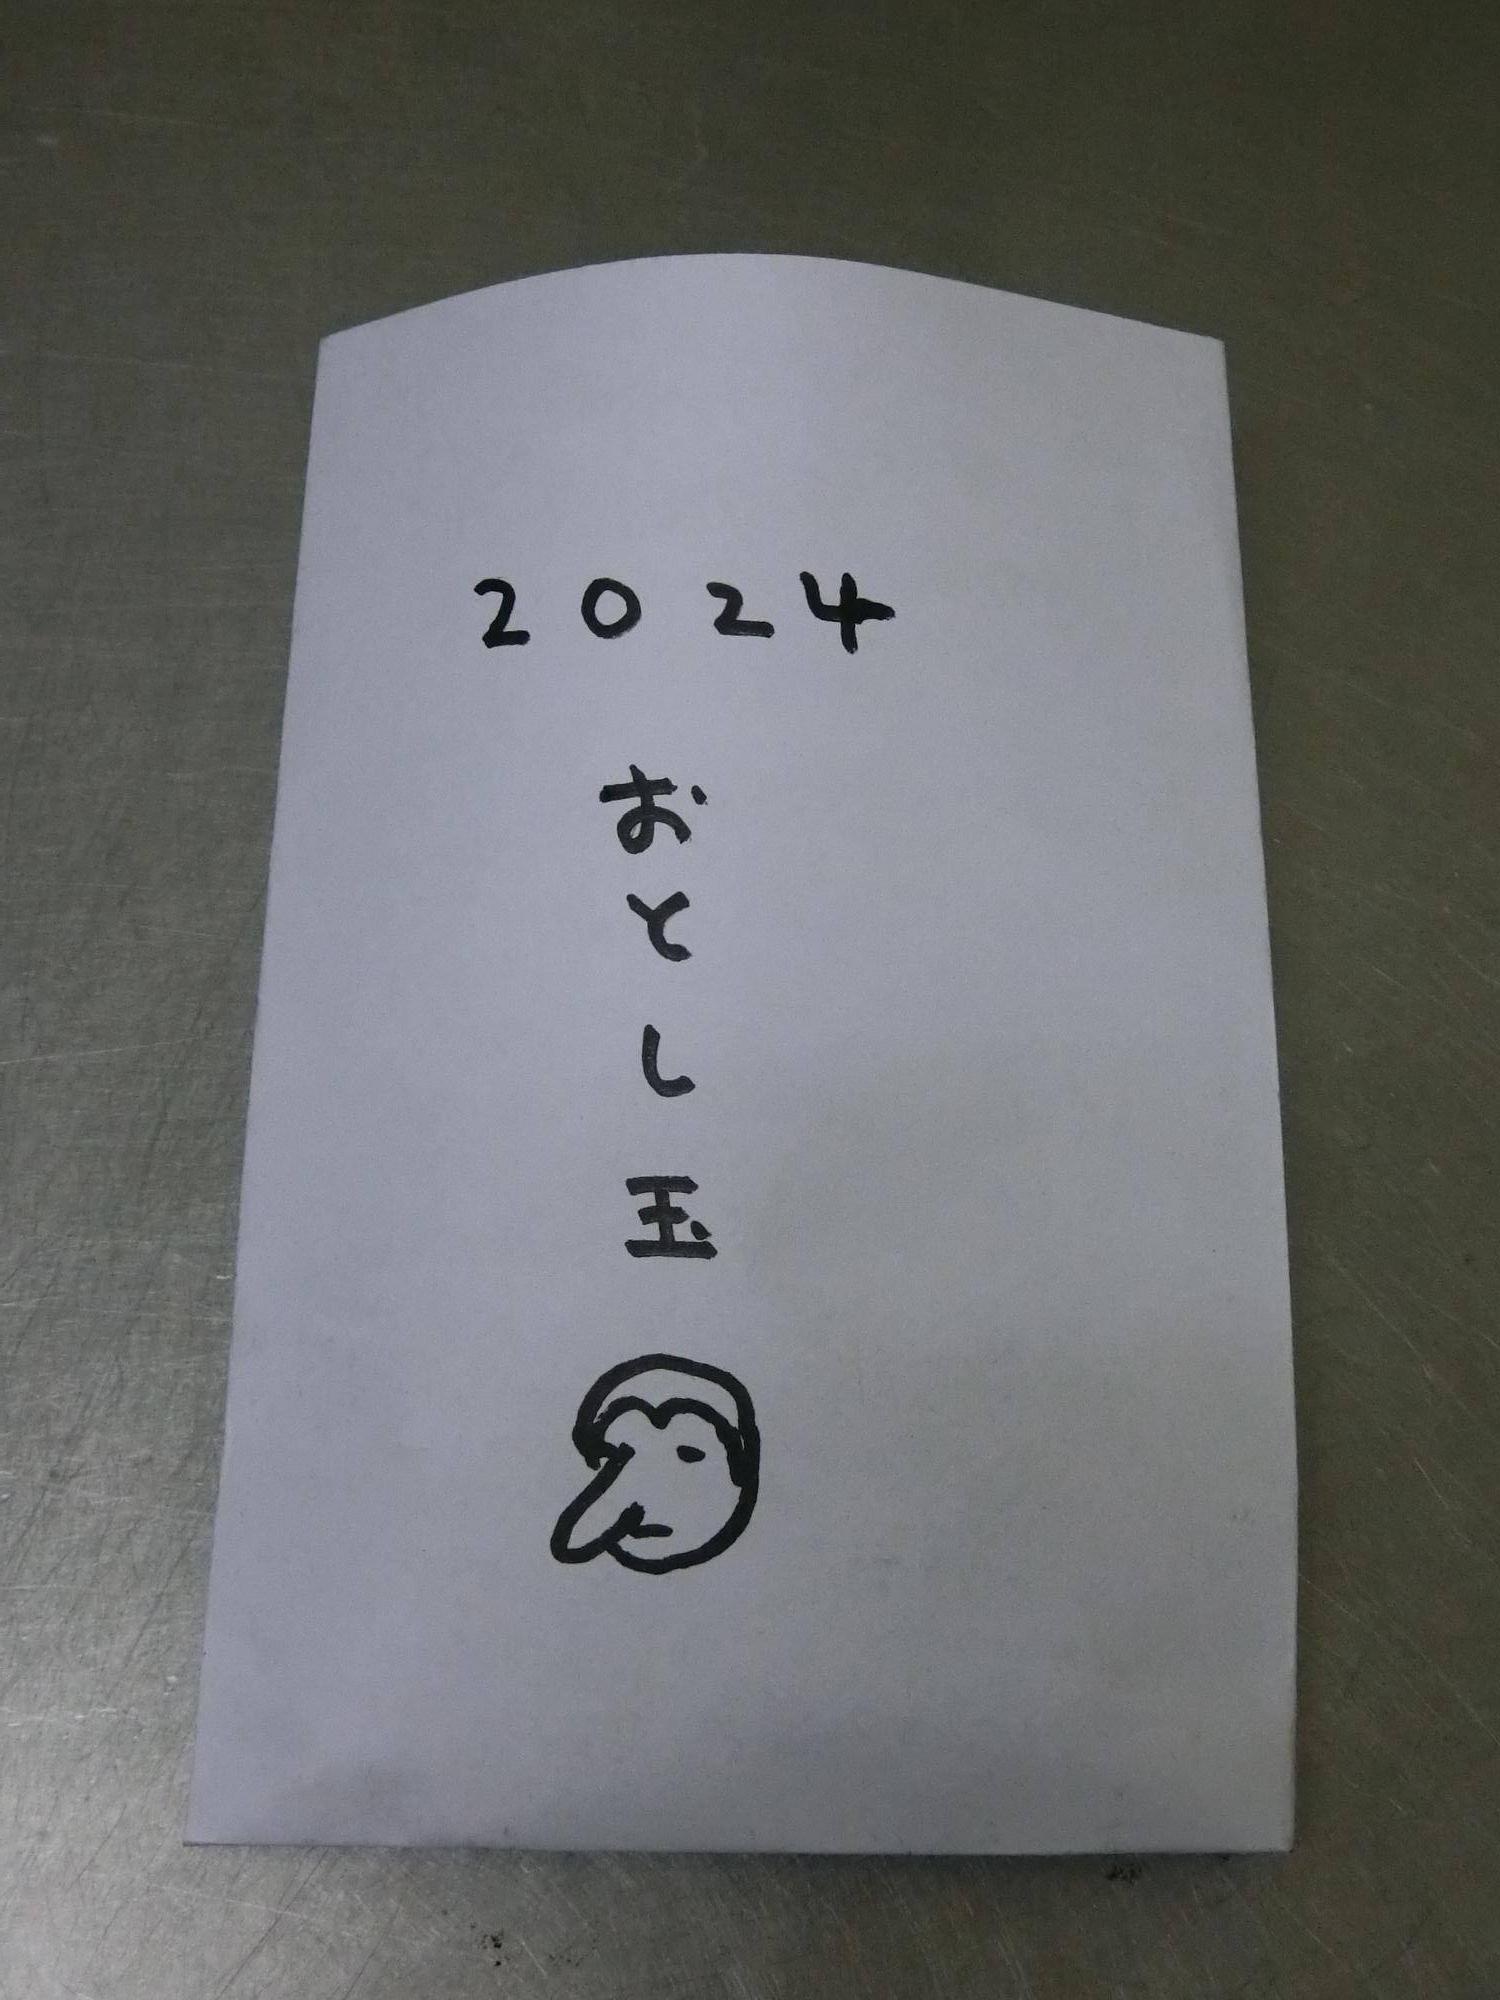 2024
おとし玉